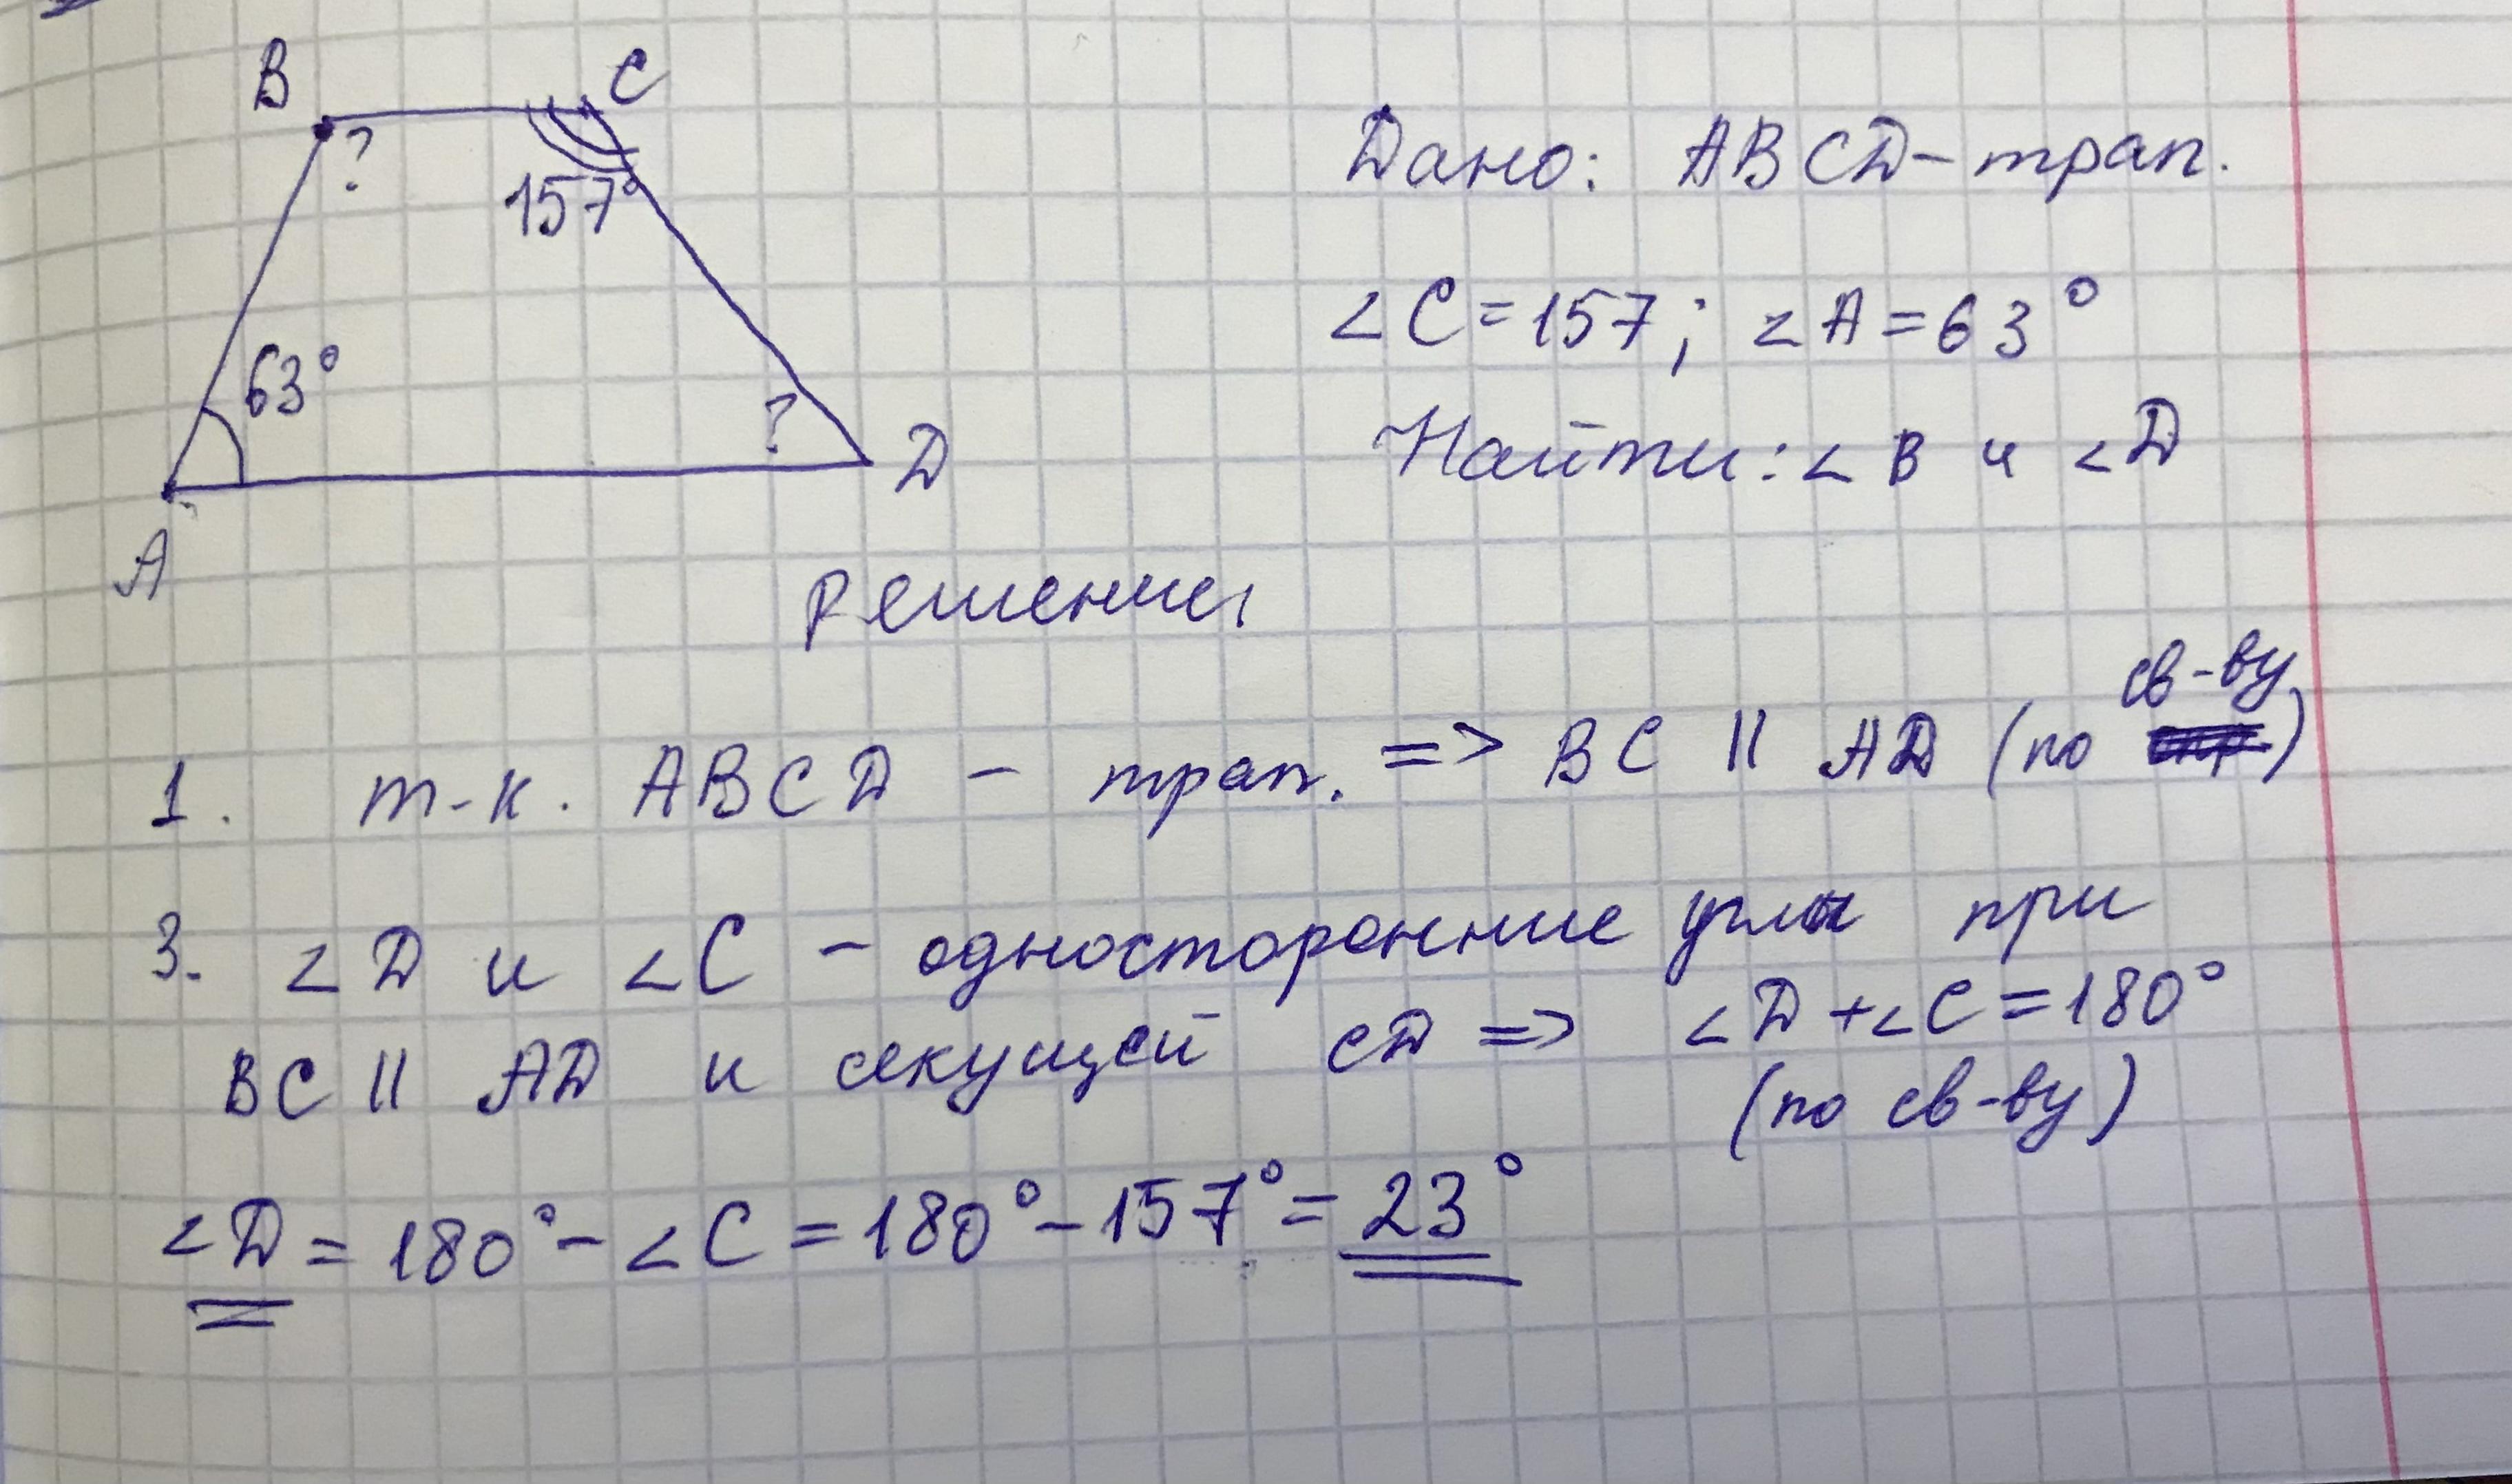 B C
?
157°
63°
?
D
A
Дано: ABCD – трап.
∠C = 157; ∠A = 63°
Найти: ∠B и ∠D
Решение,
св-ву
1. т-к. ABCD – трап. => BC || AD (по )
3. ∠D и ∠C – односторонние углы при
BC || AD и секущей CD => ∠D + ∠C = 180°
(по св-ву)
∠D = 180° – ∠C = 180° – 157° = 23°